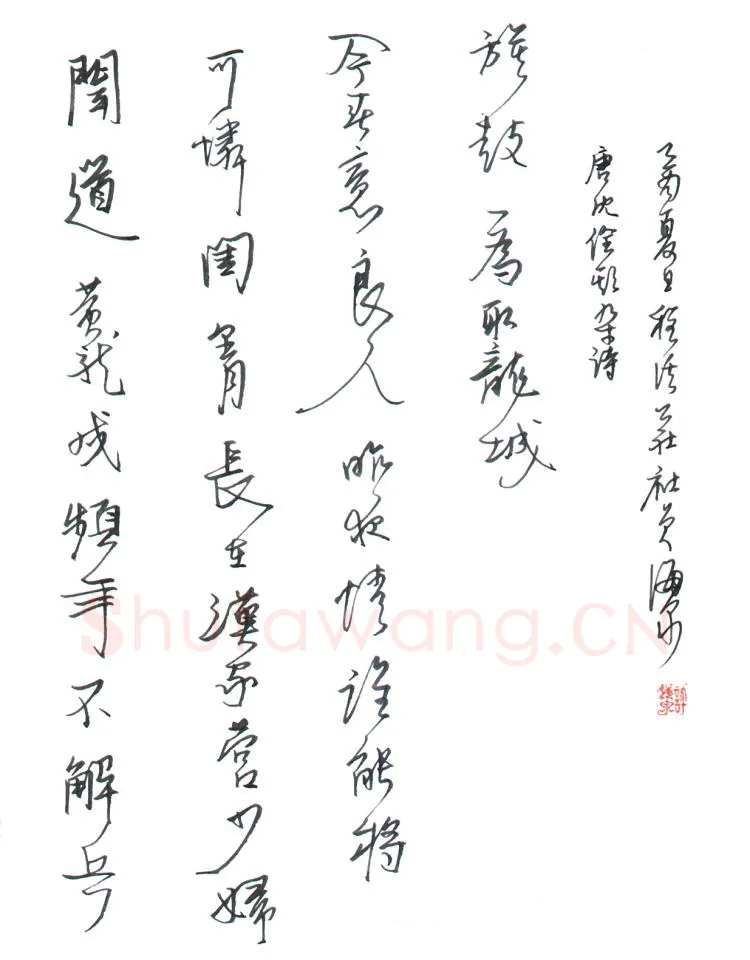 聞道黄龍戍頻年不解兵
可憐閨里月長在漢家營少婦
今春意良人昨夜情誰能將
旗鼓一為取龍城
唐沈佺期杂詩
乙酉夏日社員海泉
Shufawang.CN